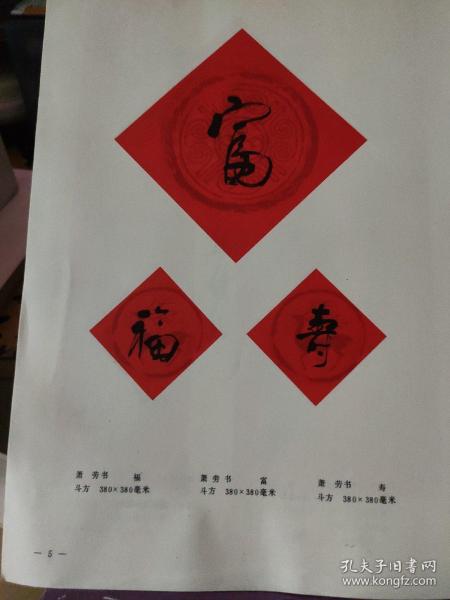 富
福
寿
萧劳书 福
斗方 380×380毫米
萧劳书 富
斗方 380×380毫米
萧劳书 寿
斗方 380×380毫米
— 5 —
孔夫子旧书网
www.kongfz.com